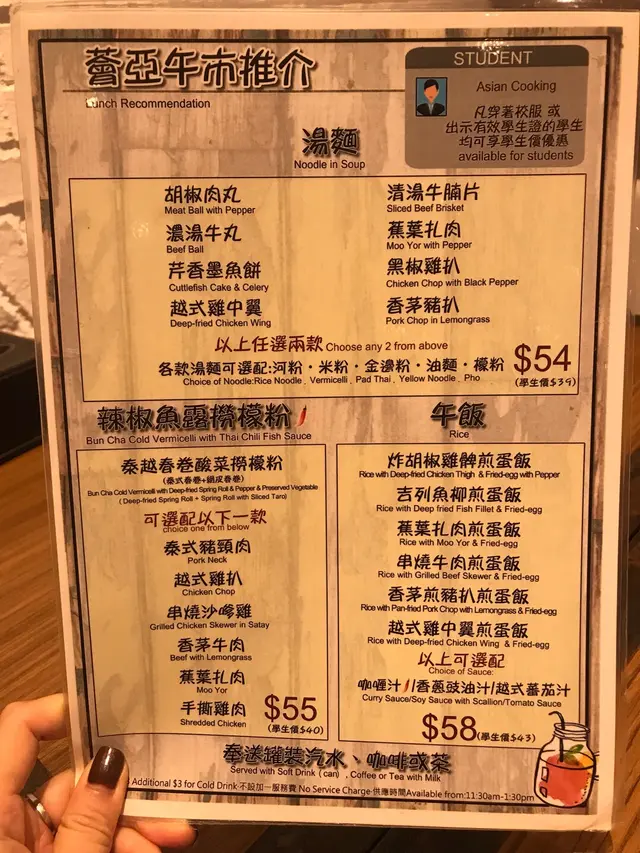 薈亞午市推介
Lunch Recommendation
STUDENT
Asian Cooking
凡穿著校服 或
出示有效學生證的學生
均可享學生價優惠
available for students
湯麵
Noodle in Soup
胡椒肉丸
Meat Ball with Pepper
濃湯牛丸
Beef Ball
芹香墨魚餅
Cuttlefish Cake & Celery
越式雞中翼
Deep-fried Chicken Wing
清湯牛腩片
Sliced Beef Brisket
蕉葉扎肉
Moo Yor with Pepper
黑椒雞扒
Chicken Chop with Black Pepper
香茅豬扒
Pork Chop in Lemongrass
以上任選兩款 Choose any 2 from above
各款湯麵可選配:河粉・米粉・金邊粉・油麵・檬粉
Choice of Noodle:Rice Noodle , Vermicelli , Pad Thai , Yellow Noodle , Pho
$54
(學生價$39)
辣椒魚露撈檬粉
Bun Cha Cold Vermicelli with Thai Chili Fish Sauce
泰越春卷酸菜撈檬粉
(泰式春卷+網皮春卷)
Bun Cha Cold Vermicelli with Deep-fried Spring Roll & Pepper & Preserved Vegetable
(Deep-fried Spring Roll + Spring Roll with Sliced Taro)
可選配以下一款
choice one from below
泰式豬頸肉
Pork Neck
越式雞扒
Chicken Chop
串燒沙嗲雞
Grilled Chicken Skewer in Satay
香茅牛肉
Beef with Lemongrass
蕉葉扎肉
Moo Yor
手撕雞肉
Shredded Chicken
$55
(學生價$40)
午飯
Rice
炸胡椒雞髀煎蛋飯
Rice with Deep-fried Chicken Thigh & Fried-egg with Pepper
吉列魚柳煎蛋飯
Rice with Deep fried Fish Fillet & Fried-egg
蕉葉扎肉煎蛋飯
Rice with Moo Yor & Fried-egg
串燒牛肉煎蛋飯
Rice with Grilled Beef Skewer & Fried-egg
香茅煎豬扒煎蛋飯
Rice with Pan-fried Pork Chop with Lemongrass & Fried-egg
越式雞中翼煎蛋飯
Rice with Deep-fried Chicken Wing & Fried-egg
以上可選配
Choice of Sauce:
咖喱汁/香蔥豉油汁/越式蕃茄汁
Curry Sauce/Soy Sauce with Scallion/Tomato Sauce
$58(學生價$43)
奉送罐裝汽水、咖啡或茶
Served with Soft Drink (can) , Coffee or Tea with Milk
Additional $3 for Cold Drink 不設加一服務費 No Service Charge 供應時間Available from:11:30am-1:30pm